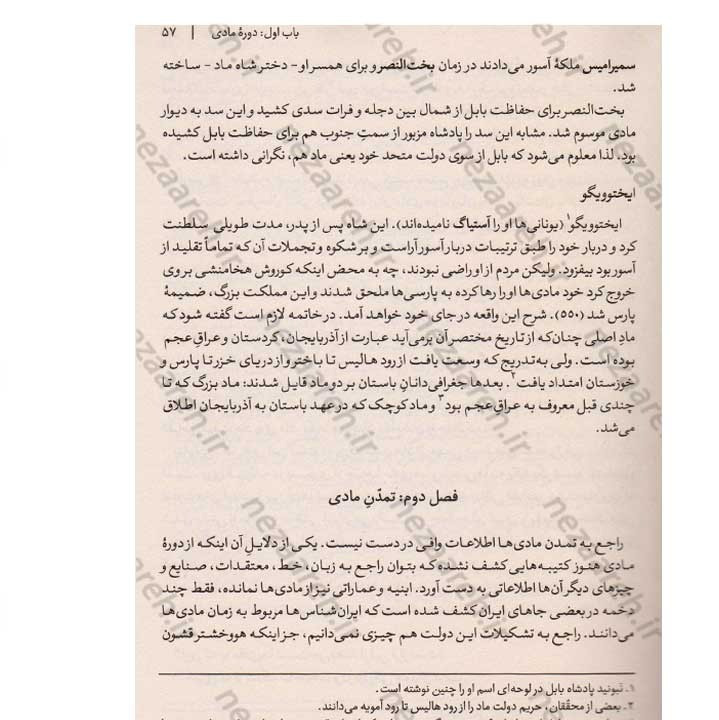 باب اول: دورهٔ مادی | ۵۷
سمیرامیس ملکهٔ آسور می‌دادند در زمان بخت‌النصر و برای همسر او - دختر شاه ماد - ساخته
شد.
بخت‌النصر برای حفاظت بابل از شمال بین دجله و فرات سدی کشید و این سد به دیوار
مادی موسوم شد. مشابه این سد را پادشاه مزبور از سمتِ جنوب هم برای حفاظت بابل کشیده
بود. لذا معلوم می‌شود که بابل از سوی دولت متحد خود یعنی ماد هم، نگرانی داشته است.
ایختوویگو
ایختوویگو۱ (یونانی‌ها او را آستیاگ نامیده‌اند). این شاه پس از پدر، مدت طویلی سلطنت
کرد و دربار خود را طبق ترتیبات دربار آسور آراست و بر شکوه و تجملات آن که تماماً تقلید از
آسور بود بیفزود. ولیکن مردم از او راضی نبودند، چه به محض اینکه کوروش هخامنشی بر وی
خروج کرد خود مادی‌ها او را رها کرده به پارسی‌ها ملحق شدند و این مملکت بزرگ، ضمیمهٔ
پارس شد (۵۵۰). شرح این واقعه در جای خود خواهد آمد. در خاتمه لازم است گفته شود که
مادِ اصلی چنان‌که از تاریخ مختصر آن برمی‌آید عبارت از آذربایجان، کردستان و عراقِ عجم
بوده است. ولی به‌تدریج که وسعت یافت از رود هالیس تا باختر و از دریای خزر تا پارس و
خوزستان امتداد یافت۲. بعدها جغرافی‌دانانِ باستان بر دو ماد قایل شدند: ماد بزرگ که تا
چندی قبل معروف به عراقِ عجم بود۳ و ماد کوچک که در عهد باستان به آذربایجان اطلاق
می‌شد.
فصل دوم: تمدّنِ مادی
راجع به تمدن مادی‌ها اطلاعات وافی در دست نیست. یکی از دلایلِ آن اینکه از دورهٔ
مادی هنوز کتیبه‌هایی کشف نشده که بتوان راجع به زبان، خط، معتقدات، صنایع و
چیزهای دیگر آن‌ها اطلاعاتی به دست آورد. ابنیه و عماراتی نیز از مادی‌ها نمانده، فقط چند
دخمه در بعضی جاهای ایران کشف شده است که ایران‌شناس‌ها مربوط به زمان مادی‌ها
می‌دانند. راجع به تشکیلات این دولت هم چیزی نمی‌دانیم، جز اینکه هووخشتر قشون
۱. نبونید پادشاه بابل در لوحه‌ای اسم او را چنین نوشته است.
۲. بعضی از محقّقان، حریم دولت ماد را از رود هالیس تا رود آمویه می‌دانند.
nezaareh.ir